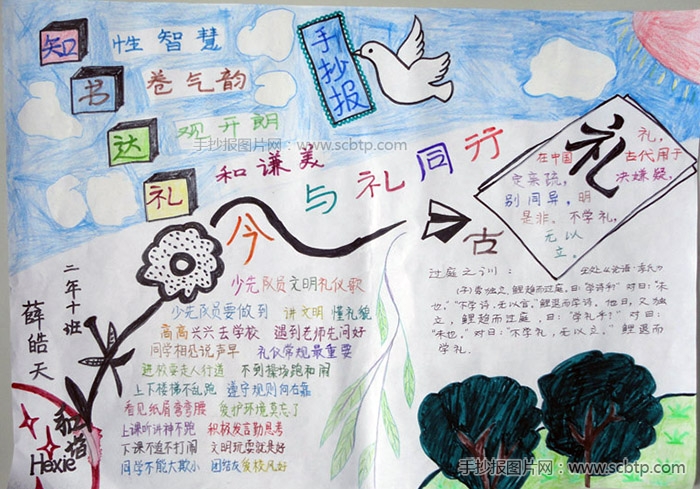 知 性智慧
书 卷气韵
达 观开朗
礼 和谦美
手抄报
手抄报图片网:www.scbtp.com
今与礼同行 古
礼
礼,
在中国 古代用于
定亲疏, 决嫌疑,
别同异, 明
是非。不学礼,
无以
立。
二年十班
薛皓天
和谐
Hexie
少先队员文明礼仪歌
少先队员要做到 讲文明 懂礼貌
高高兴兴去学校 遇到老师先问好
同学相见说声早 礼仪常规最重要
进校要走人行道 不到操场跑和闹
上下楼梯不乱跑 遵守规则向右靠
看见纸屑弯弯腰 爱护环境莫忘了
上课听讲神不跑 积极发言勤思考
下课不追不打闹 文明玩耍就是好
同学不能大欺小 团结友爱校风好
过庭之训: 出处《论语·季氏》
(子)尝独立,鲤趋而过庭,曰:"学诗乎?"对曰:"未
也。""不学诗,无以言。"鲤退而学诗。他日,又独
立,鲤趋而过庭,曰:"学礼乎?"对曰:
"未也。"对曰:"不学礼,无以立。"鲤退而
学礼.
手抄报图片网:www.scbtp.com